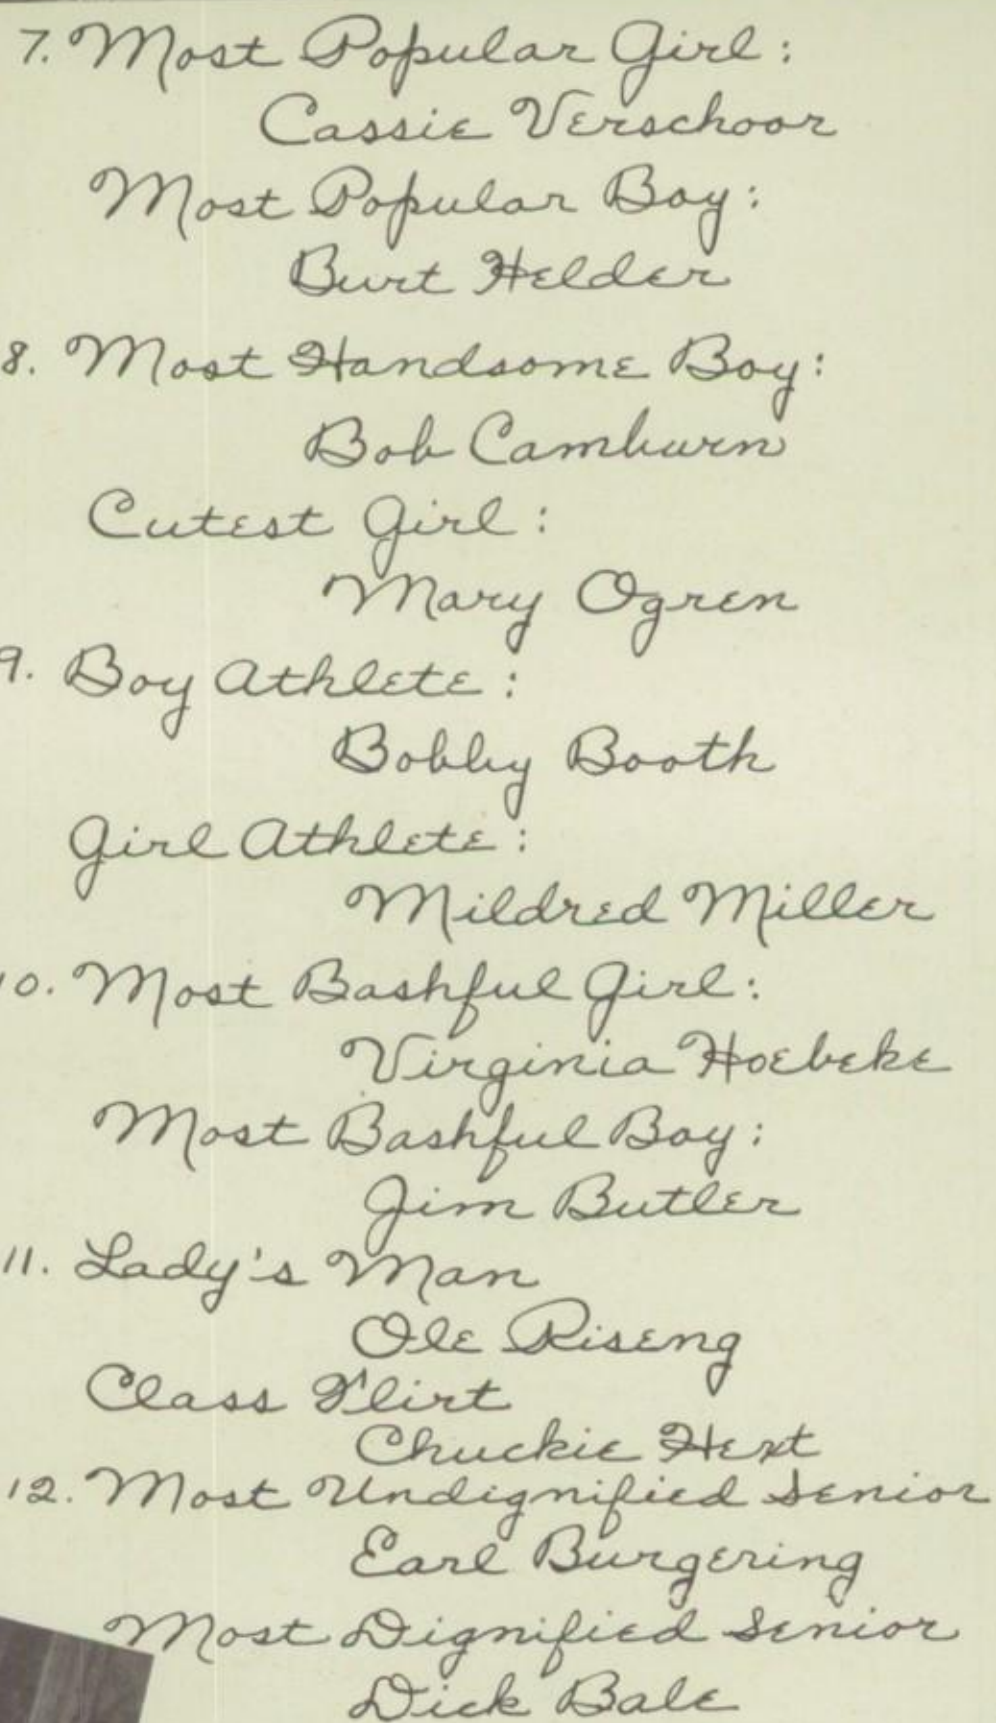 7. Most Popular Girl:
Cassie Verschoor
Most Popular Boy:
Burt Helder
8. Most Handsome Boy:
Bob Camburn
Cutest Girl:
Mary Ogren
9. Boy Athlete:
Bobby Booth
Girl Athlete:
Mildred Miller
10. Most Bashful Girl:
Virginia Hoebeke
Most Bashful Boy:
Jim Butler
11. Lady's Man
Ole Riseng
Class Flirt
Chuckie Hext
12. Most Undignified Senior
Earl Burgering
Most Dignified Senior
Dick Bale